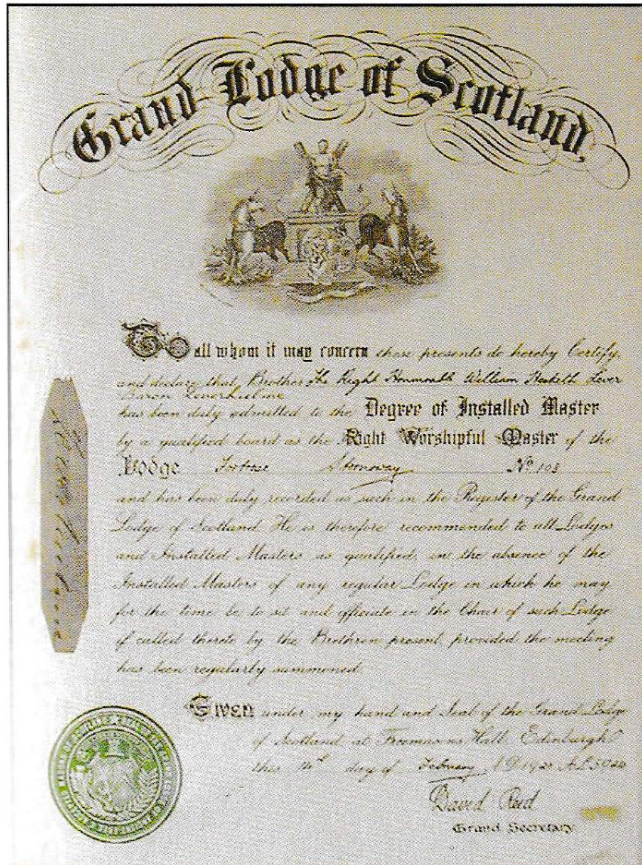 Grand Lodge of Scotland.
To all whom it may concern these presents do hereby Certify,
and declare that Brother The Right Honourable William Hesketh Lever
Baron Leverhulme
has been duly admitted to the Degree of Installed Master
by a qualified board as the Right Worshipful Master of the
Lodge Fortrose Stornoway No 108
and has been duly recorded as such in the Register of the Grand
Lodge of Scotland. He is therefore recommended to all Lodges
and Installed Masters as qualified in the absence of the
Installed Masters of any regular Lodge in which he may
for the time be to sit and officiate in the Chair of such Lodge
if called thereto by the Brethren present, provided the meeting
has been regularly summoned.
Given under my hand and Seal of the Grand Lodge
of Scotland at Freemasons Hall, Edinburgh
this 14th day of February A.D. 19 A.L. 59
David Reid
Grand Secretary
Leverhulme